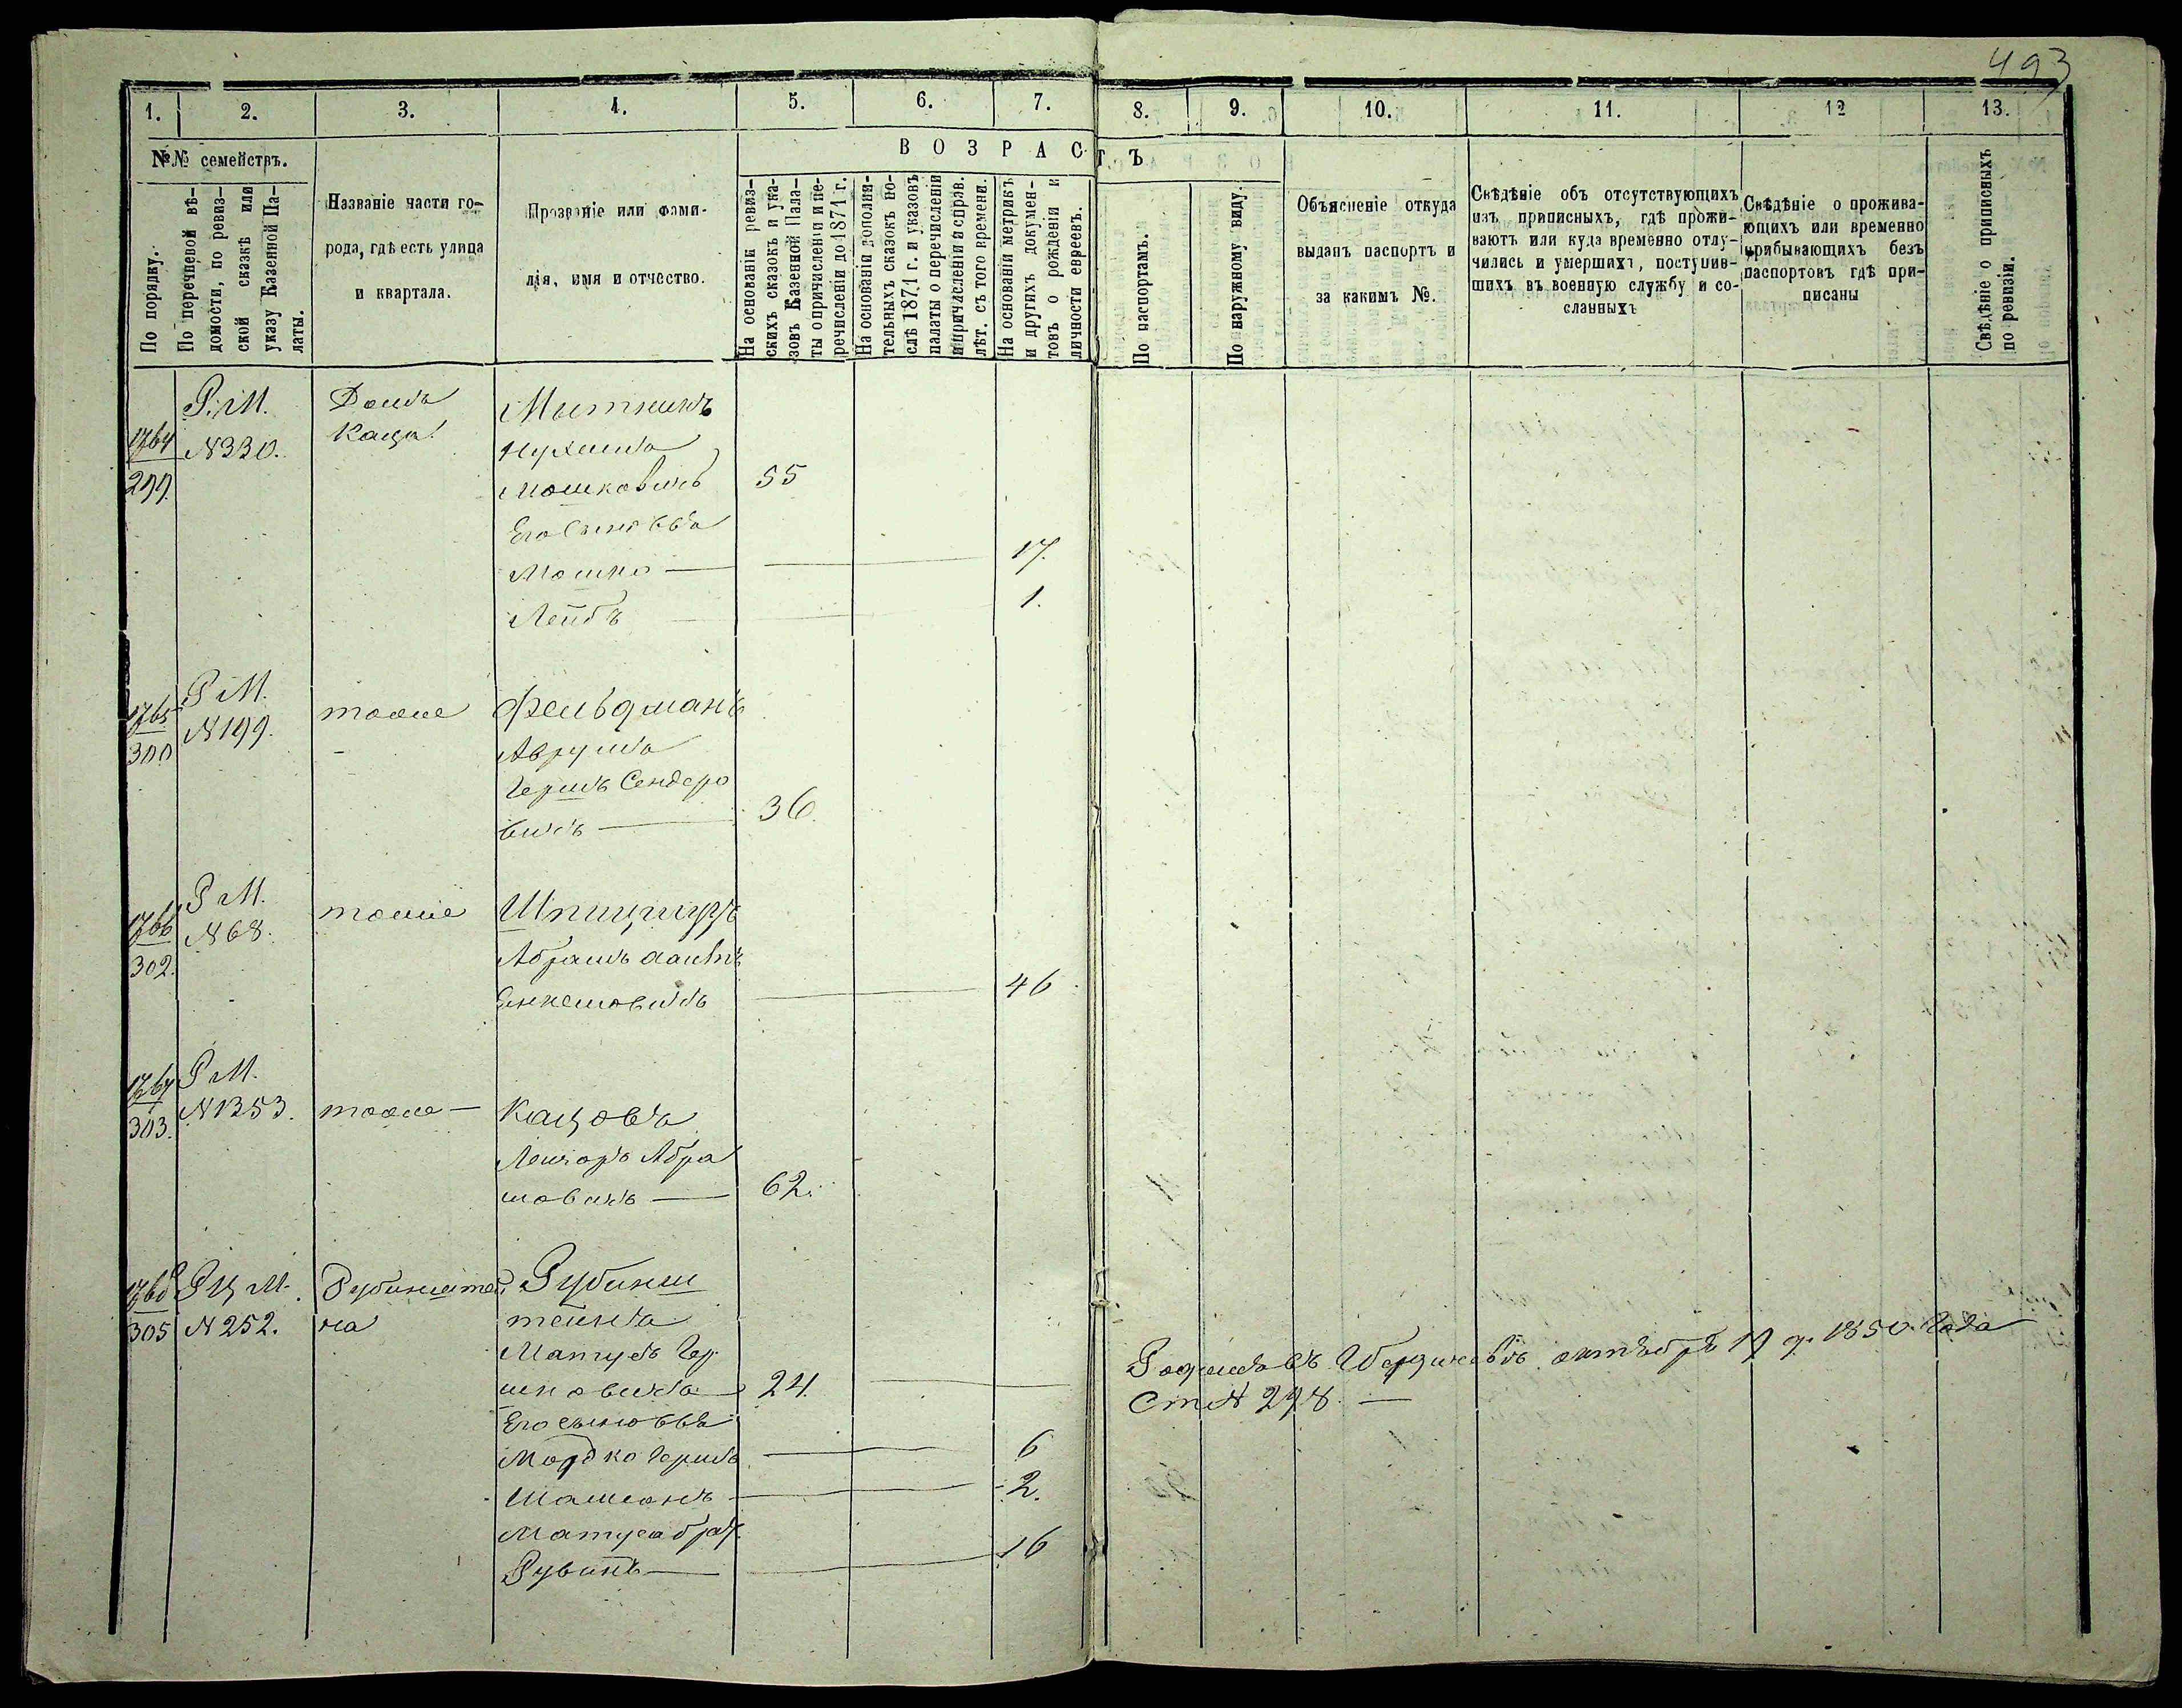 493
1. 2. 3. 4. 5. 6. 7. 8. 9. 10. 11. 12 13.
№№ семействъ.
По порядку.
По перечневой вѣ-
домости, по ревиз-
ской сказкѣ или
указу Казенной Па-
латы.
Названіе части го-
рода, гдѣ есть улица
и квартала.
Прозваніе или фами-
лія, имя и отчество.
ВОЗРАСТЪ
На основаніи ревиз-
скихъ сказокъ и ука-
зовъ Казенной Пала-
ты о причисленіи и пе-
речисленіи до 1871 г.
На основаніи дополни-
тельныхъ сказокъ по-
слѣ 1871 г. и указовъ
палаты о перечисленіи
и причисленіи и справ.
лѣт. съ того времени.
На основаніи метрикъ
и другихъ докумен-
товъ о рожденіи и
личности евреевъ.
По паспортамъ.
По наружному виду.
Объясненіе откуда
выданъ паспортъ и
за какимъ №.
Свѣдѣніе объ отсутствующихъ
изъ приписныхъ, гдѣ прожи-
ваютъ или куда временно отлу-
чились и умершихъ, поступив-
шихъ въ военную службу и со-
сланныхъ
Свѣдѣніе о прожива-
ющихъ или временно
прибывающихъ безъ
паспортовъ гдѣ при-
писаны
Свѣдѣніе о приписныхъ
по ревизіи.
1764
299.
Р. М.
N 330.
Домъ
Каца.
Мыткинъ
Нухимъ
Мошковичъ 55
Его Сыновья
Мошко — 17.
Лейбъ — 1.
1765
300
Р М.
N 199.
тоже
Фельдманъ
Аврумъ
Гершъ Сендеро
вичъ — 36.
1766
302.
Р М.
N 68.
тоже
Абрамъ
46
1767
303.
Р М.
N 1353.
тоже —
Кацовъ
Абра
мовичъ — 62.
1768
305
Р Ц М.
N 252.
Рубинштей
на
Рубинш
тейнъ
Матусъ Гер
шковичъ 24
Его сыновья
Мордко Гершъ — 6
Шамсонъ — 2.
Матуса братъ
Рувинъ — 16
Родился въ Бердичевѣ октября 19 д. 1850 Года
Ст N 298. —